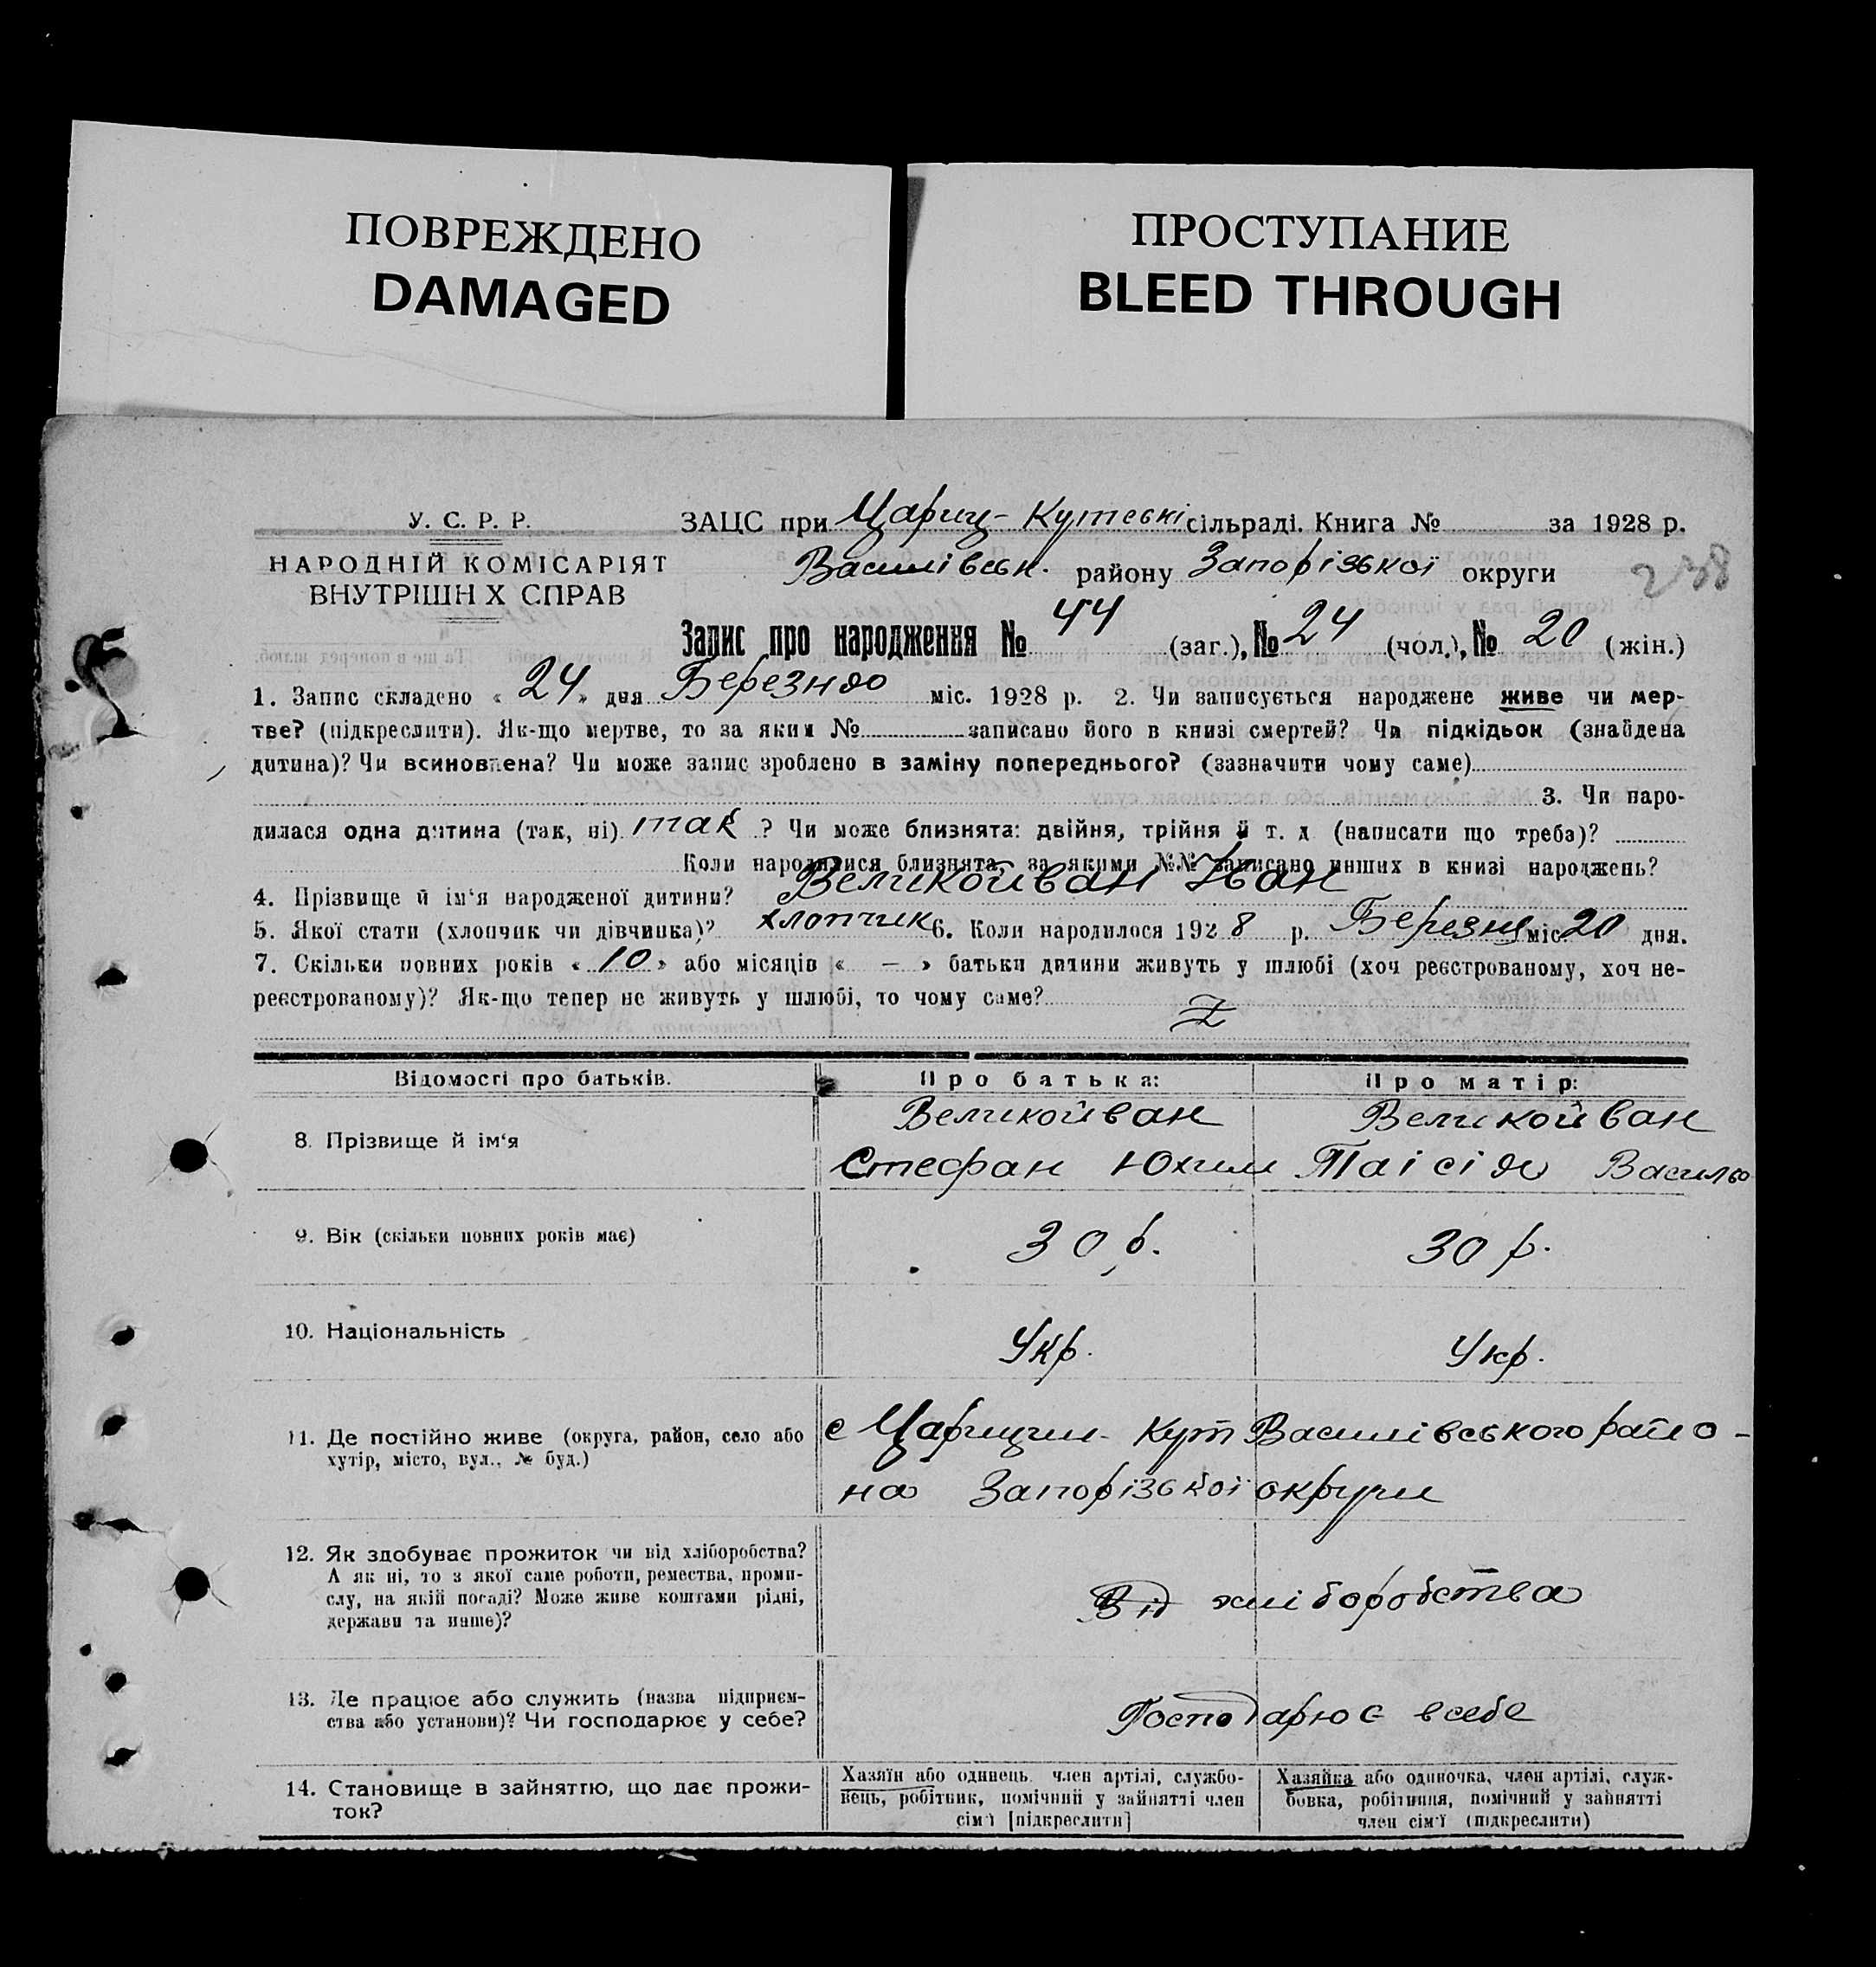 ПОВРЕЖДЕНО
DAMAGED
ПРОСТУПАНИЕ
BLEED THROUGH
У. С. Р. Р.
НАРОДНІЙ КОМІСАРІЯТ
ВНУТРІШН Х СПРАВ
ЗАЦС при Цариц-Кутескі сільраді. Книга № за 1928 р.
Василівськ. району Запорізької округи
238
Запис про народження № 44 (заг.), № 24 (чол.), № 20 (жін.)
1. Запис складено « 24 » дня Березня міс. 1928 р. 2. Чи записується народжене живе чи мер-
тве? (підкреслити). Як-що мертве, то за яким № записано його в книзі смертей? Чи підкідьок (знайдена
дитина)? Чи всиновлена? Чи може запис зроблено в заміну попереднього? (зазначити чому саме)
3. Чи наро-
дилася одна дитина (так, ні) так ? Чи може близнята: двійня, трійня й т. д (написати що треба)?
Коли народилися близнята, за якими №№ записано инших в книзі народжень?
4. Прізвище й ім'я народженої дитини? Великойван Іван
5. Якої стати (хлопчик чи дівчинка)? хлопчик 6. Коли народилося 1928 р. Березня міс. 20 дня.
7. Скільки повних років « 10 » або місяців « — » батьки дитини живуть у шлюбі (хоч реєстрованому, хоч не-
реєстрованому)? Як-що тепер не живуть у шлюбі, то чому саме?
Z
Відомості про батьків. Про батька: Про матір:
8. Прізвище й ім'я
Великойван Великойван
Стефан Юхим Таісія Василь
9. Вік (скільки повних років має) 30 р. 30 р.
10. Національність Укр. Укр.
11. Де постійно живе (округа, район, село або
хутір, місто, вул., № буд.)
с Царицин-Кут Василівського райо-
на Запорізької округи
12. Як здобуває прожиток чи від хліборобства?
А як ні, то з якої саме роботи, ремества, проми-
слу, на якій посаді? Може живе коштами рідні,
держави та инше)?
Від хліборобства
13. Де працює або служить (назва підприєм-
ства або установи)? Чи господарює у себе?
Господарює в себе
14. Становище в зайняттю, що дає прожи-
ток?
Хазяїн або одинець член артілі, службо-
вець, робітник, помічний у зайнятті член
сім'ї [підкреслити]
Хазяйка або одиночка, член артілі, служ-
бовка, робітниця, помічний у зайнятті
член сім'ї (підкреслити)